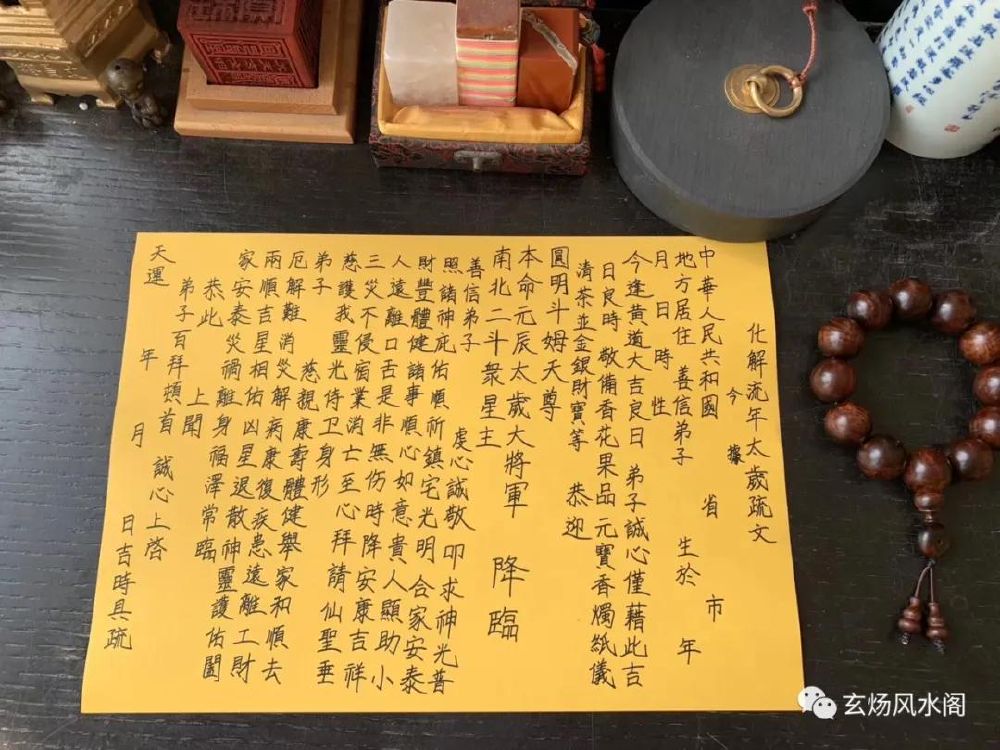 化解流年太歲疏文
今 據
中華人民共和國 省 市
地方居住 善信弟子 生於 年
月 日 時 性
今逢黄道大吉良日 弟子誠心僅藉此吉
日良時 敬備香花果品元寶香燭紙儀
清茶並金銀財寶等 恭迎
圓明斗姆天尊
本命元辰太歲大將軍 降臨
南北二斗衆星主
善信弟子 虔心誠敬 叩求神光普
照諸神庇佑順祈鎮宅光明 合家安泰
財豐體健諸事順心如意貴人顯助小
人遠離口舌是非無伤時降安康吉祥
三災不侵宿業消亡至心拜請仙聖垂
慈護我靈光侍卫身形
弟子 慈親康壽體健舉家和順去
厄解難消災解病康復疾患遠離工財
兩順吉星相佑凶星退散神靈護佑闔
家安泰災禍離身福澤常臨
恭此 上聞
弟子百拜頓首 誠心上啓
天運 年 月 日吉時具疏
玄炀风水阁